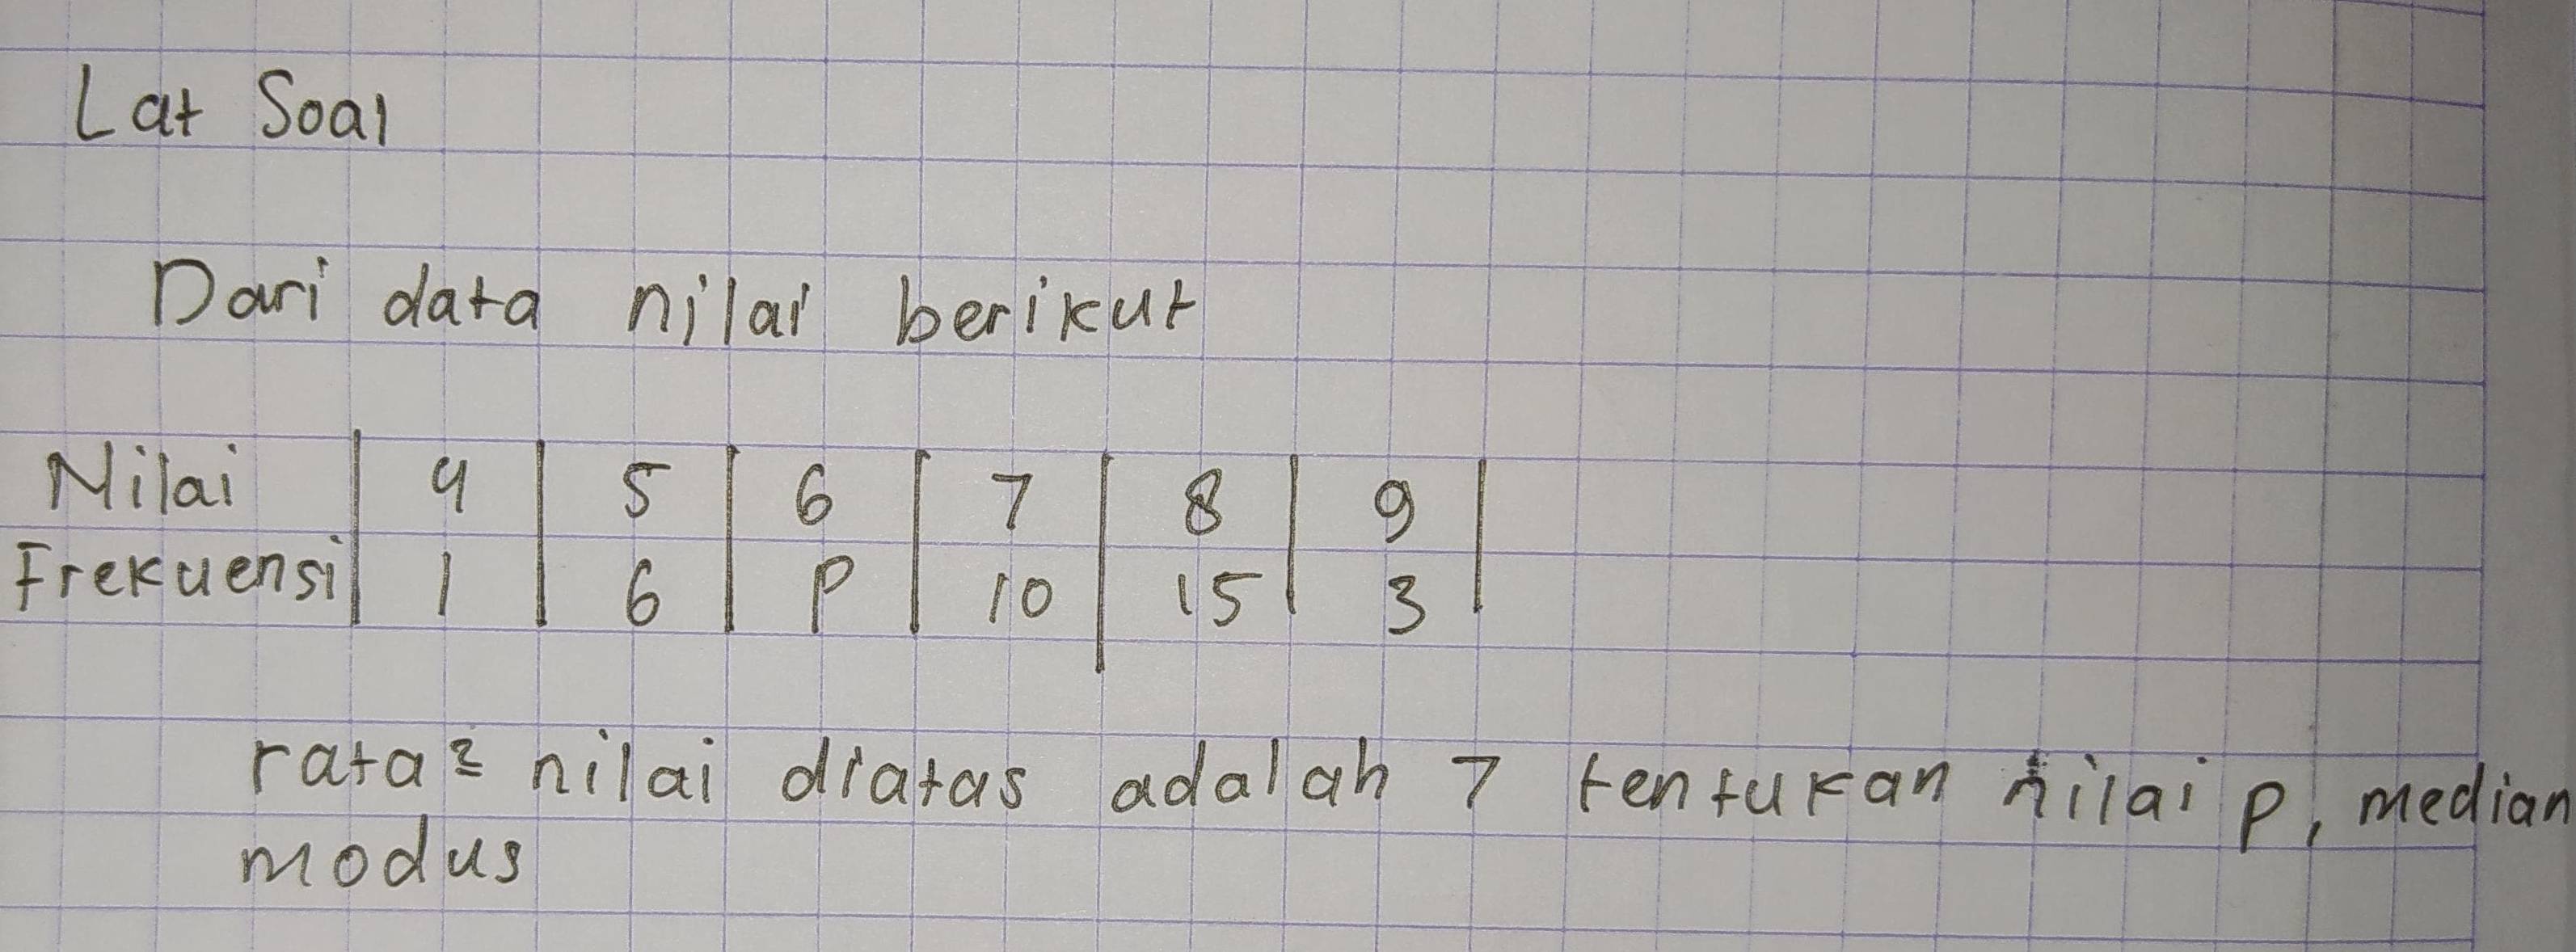 Lat Soal
Dari data nilai berikut
Nilai | 4 | 5 | 6 | 7 | 8 | 9 |
Frekuensi | 1 | 6 | P | 10 | 15 | 3 |
rata² nilai diatas adalah 7 tentukan nilai p, median
modus